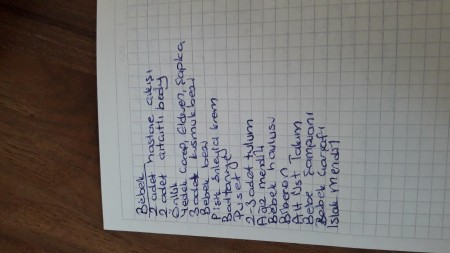 Bebek
2 adet hastane çıkışı
2 adet çıtçıtlı body
Önlük
Yedek Çorap, Eldiven, Şapka
3 adet kusmuk bezi
Bebek bezi
Pişik önleyici krem
Battaniye
Puset
2-3 adet tulum
Ağız mendili
Bebek havlusu
Biberon
Alt Üst Takım
Bebe Şampuanı
Bebek Çarşafı
Islak mendil